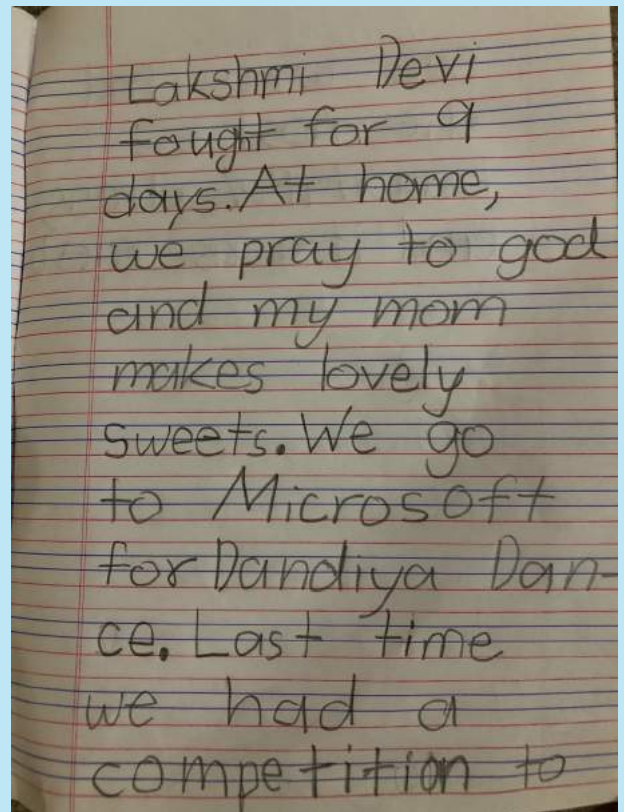 Lakshmi Devi
fought for 9
days. At home,
we pray to god
and my mom
makes lovely
sweets. We go
to Microsoft
for Dandiya Dan-
ce. Last time
we had a
competition to